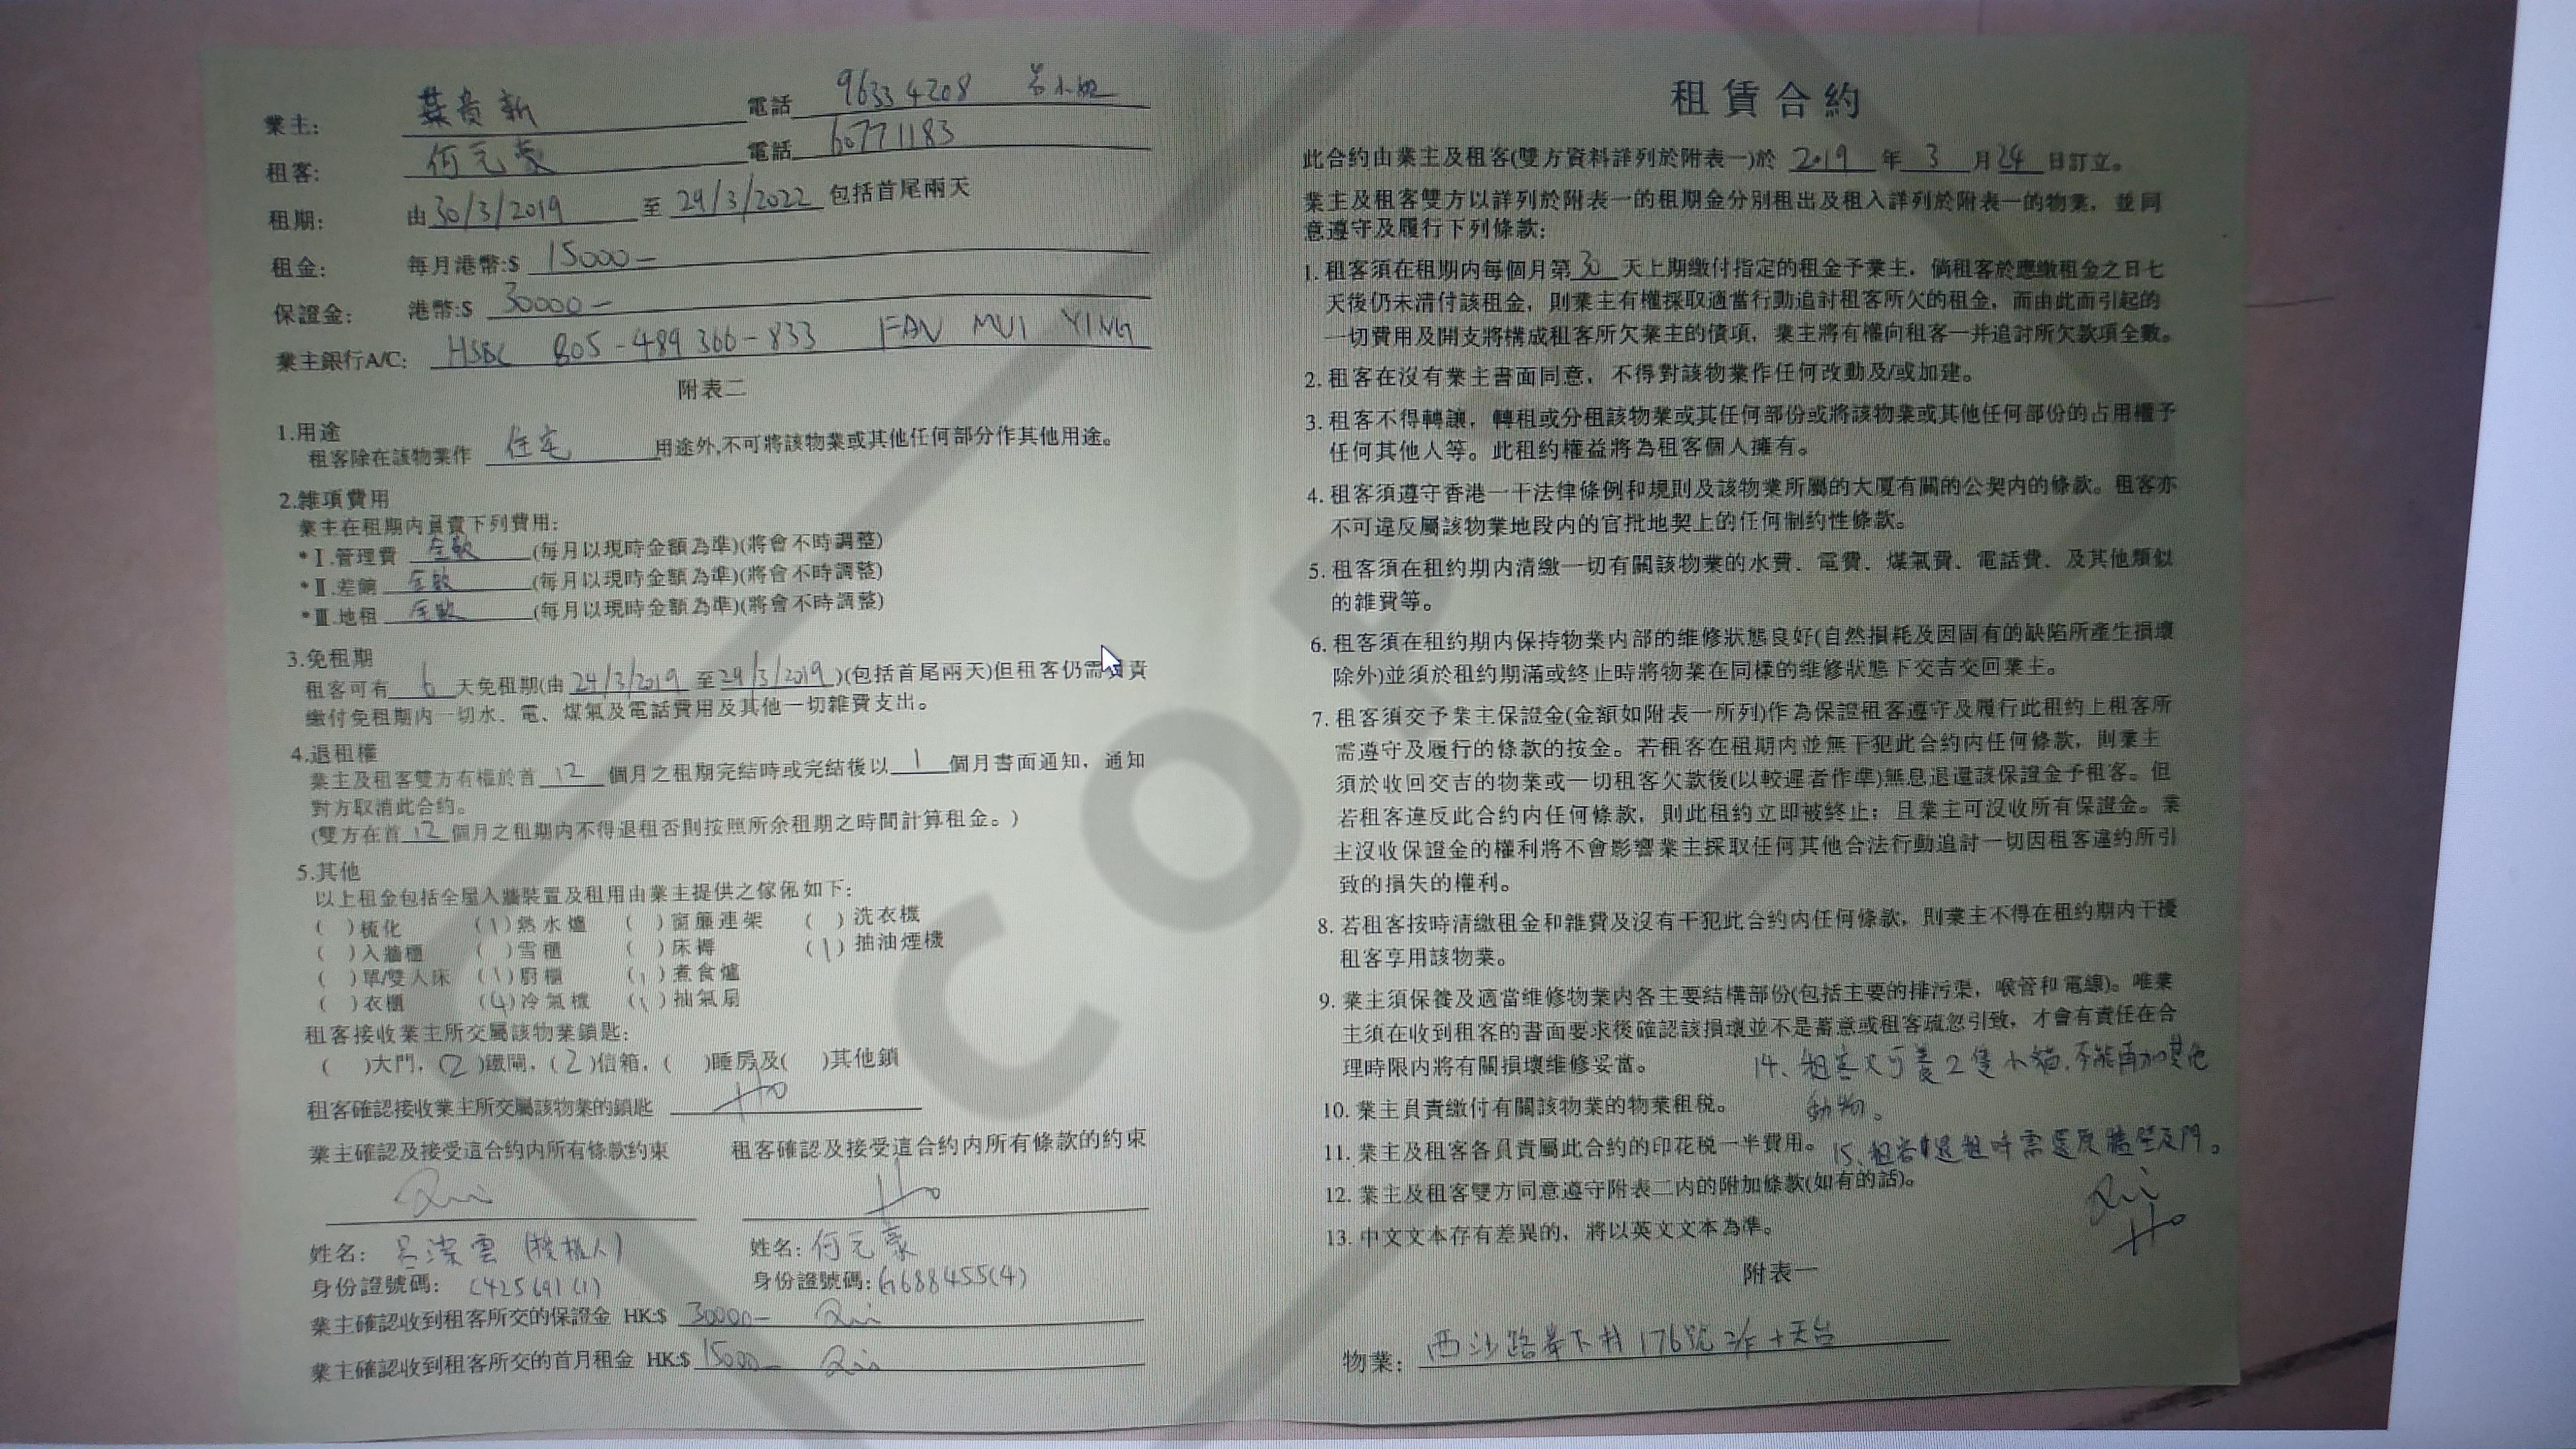 業主: 葉貴新 電話 9633 4208 呂小姐
租客: 何元豪 電話 60771183
租期: 由 30/3/2019 至 29/3/2022 包括首尾兩天
租金: 每月港幣:$ 15000-
保證金: 港幣:$ 30000-
業主銀行A/C: HSBC 805-489 366-833 FAN MUI YING
附表二
1.用途
租客除在該物業作 住宅 用途外,不可將該物業或其他任何部分作其他用途。
2.雜項費用
業主在租期內負責下列費用:
*Ⅰ.管理費 全數 (每月以現時金額為準)(將會不時調整)
*Ⅱ.差餉 全數 (每月以現時金額為準)(將會不時調整)
*Ⅲ.地租 全數 (每月以現時金額為準)(將會不時調整)
3.免租期
租客可有 6 天免租期(由 24/3/2019 至 29/3/2019 )(包括首尾兩天)但租客仍需負責
繳付免租期內一切水、電、煤氣及電話費用及其他一切雜費支出。
4.退租權
業主及租客雙方有權於首 12 個月之租期完結時或完結後以 1 個月書面通知，通知
對方取消此合約。
(雙方在首 12 個月之租期內不得退租否則按照所余租期之時間計算租金。)
5.其他
以上租金包括全屋入牆裝置及租用由業主提供之傢俬如下:
( )梳化 (1)熱水爐 ( )窗簾連架 ( )洗衣機
( )入牆櫃 ( )雪櫃 ( )床褥 (1)抽油煙機
( )單/雙人床 (1)廚櫃 (1)煮食爐
( )衣櫃 (4)冷氣機 (1)抽氣扇
租客接收業主所交屬該物業鎖匙:
( )大門, (2)鐵閘, (2)信箱, ( )睡房及( )其他鎖
租客確認接收業主所交屬該物業的鎖匙 Ho
業主確認及接受這合約內所有條款約束 租客確認及接受這合約內所有條款的約束
Ho
姓名: 呂潔雲 (授權人) 姓名: 何元豪
身份證號碼: C425691(1) 身份證號碼: G688455(4)
業主確認收到租客所交的保證金 HK:$ 30000-
業主確認收到租客所交的首月租金 HK:$ 15000-
租賃合約
此合約由業主及租客(雙方資料詳列於附表一)於 2019 年 3 月 24 日訂立。
業主及租客雙方以詳列於附表一的租期金分別租出及租入詳列於附表一的物業，並同
意遵守及履行下列條款:
1. 租客須在租期內每個月第 30 天上期繳付指定的租金予業主，倘租客於應繳租金之日七
天後仍未清付該租金，則業主有權採取適當行動追討租客所欠的租金，而由此而引起的
一切費用及開支將構成租客所欠業主的債項，業主將有權向租客一并追討所欠款項全數。
2. 租客在沒有業主書面同意，不得對該物業作任何改動及/或加建。
3. 租客不得轉讓，轉租或分租該物業或其任何部份或將該物業或其他任何部份的占用權予
任何其他人等。此租約權益將為租客個人擁有。
4. 租客須遵守香港一干法律條例和規則及該物業所屬的大廈有關的公契內的條款。租客亦
不可違反屬該物業地段內的官批地契上的任何制約性條款。
5. 租客須在租約期內清繳一切有關該物業的水費、電費、煤氣費、電話費、及其他類似
的雜費等。
6. 租客須在租約期內保持物業內部的维修狀態良好(自然損耗及因固有的缺陷所產生損壞
除外)並須於租約期滿或終止時將物業在同樣的维修狀態下交吉交回業主。
7. 租客須交予業主保證金(金額如附表一所列)作為保證租客遵守及履行此租約上租客所
需遵守及履行的條款的按金。若租客在租期內並無干犯此合約內任何條款，則業主
須於收回交吉的物業或一切租客欠款後(以較遲者作準)無息退還該保證金予租客。但
若租客違反此合約內任何條款，則此租約立即被終止；且業主可沒收所有保證金。業
主沒收保證金的權利將不會影響業主採取任何其他合法行動追討一切因租客違約所引
致的損失的權利。
8. 若租客按時清繳租金和雜費及沒有干犯此合約內任何條款，則業主不得在租約期內干擾
租客享用該物業。
9. 業主須保養及適當维修物業內各主要結構部份(包括主要的排污渠，喉管和電線)。唯業
主須在收到租客的書面要求後確認該損壞並不是蓄意或租客疏忽引致，才會有責任在合
理時限內將有關損壞维修妥當。
14、租客只可養2隻小貓，不能再加其他
動物。
10. 業主負責繳付有關該物業的物業租税。
11. 業主及租客各負責屬此合約的印花税一半費用。
15、租客退租時需還原牆壁及門。
12. 業主及租客雙方同意遵守附表二內的附加條款(如有的話)。
13. 中文文本存有差異的，將以英文文本為準。
Ho
附表一
物業: 西沙路輋下村176號2/F+天台
COPY